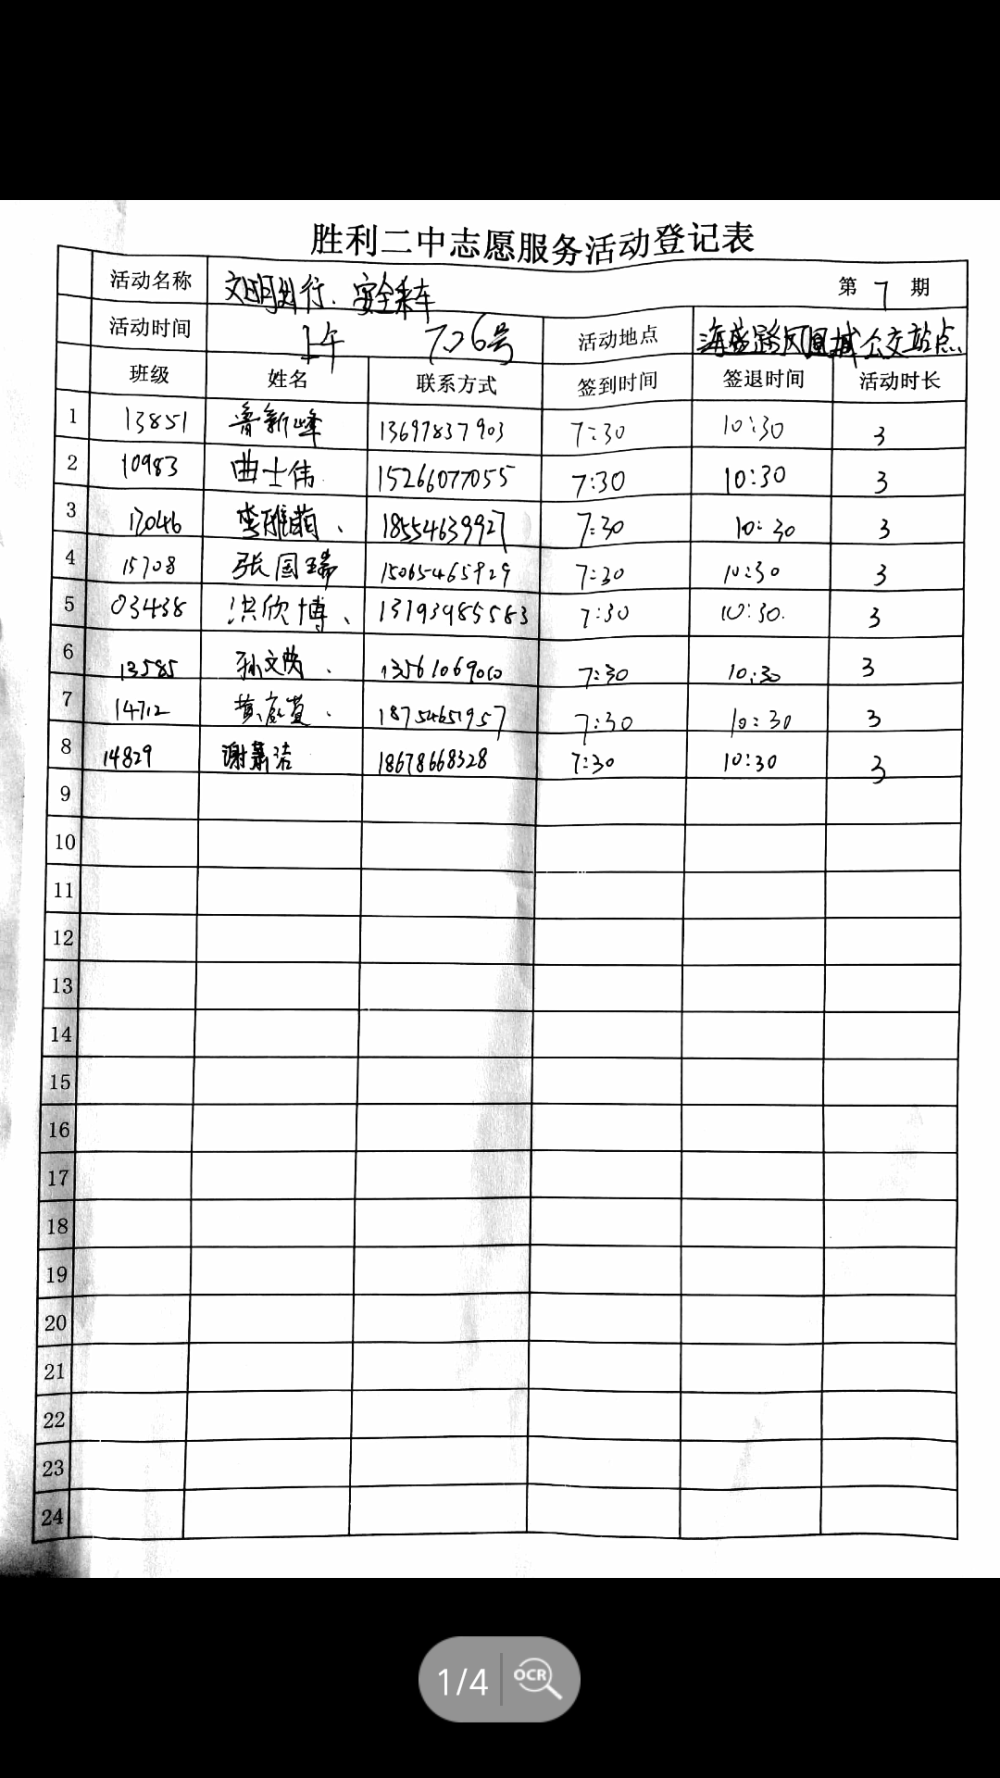 胜利二中志愿服务活动登记表
活动名称 文明出行、安全乘车 第 7 期
活动时间 上午 7.26号 活动地点 海盛路凤凰城公交站点
班级 姓名 联系方式 签到时间 签退时间 活动时长
1 13851 鲁新峰 13697837903 7:30 10:30 3
2 10983 曲士伟 15266077055 7:30 10:30 3
3 12046 18554639927 7:30 10:30 3
4 15708 张国瑞 15065465929 7:30 10:30 3
5 03438 洪欣博、 13793985583 7:30 10:30. 3
6 13585 孙文 13561069010 7:30 10:30 3
7 14712 黄 18754651957 7:30 10:30 3
8 14829 谢 洁 18678668328 7:30 10:30 3
9
10
11
12
13
14
15
16
17
18
19
20
21
22
23
24
1/4 OCR